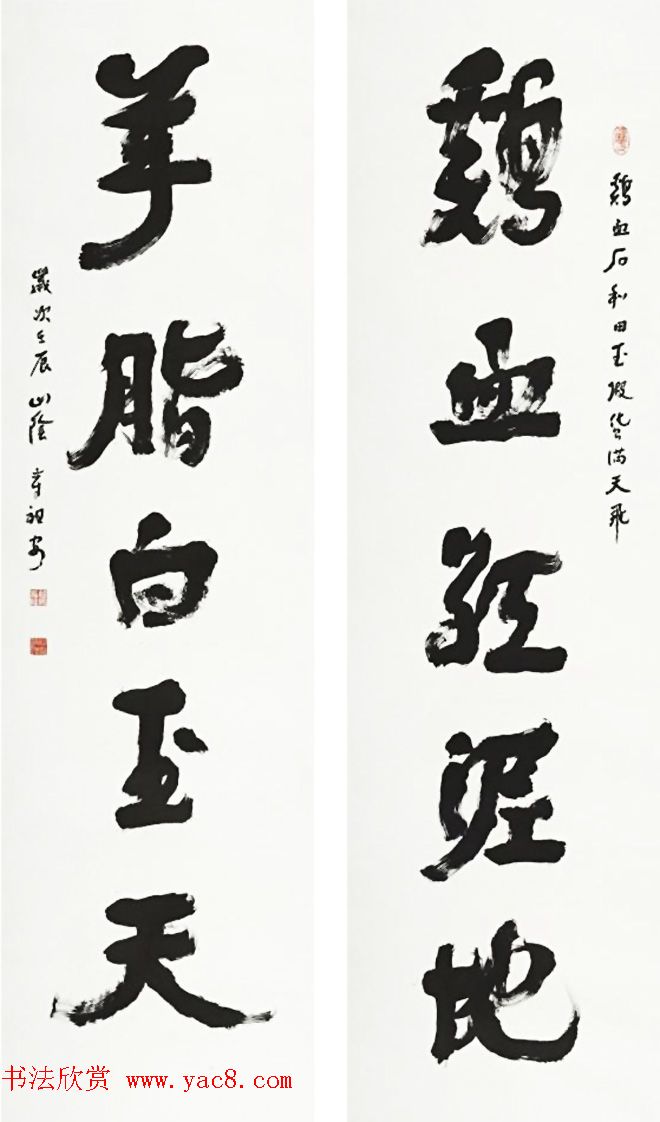 鷄血石和田玉假货满天飛
鷄血紅泥地
羊脂白玉天
歲次壬辰山陰章祖安
书法欣赏 www.yac8.com